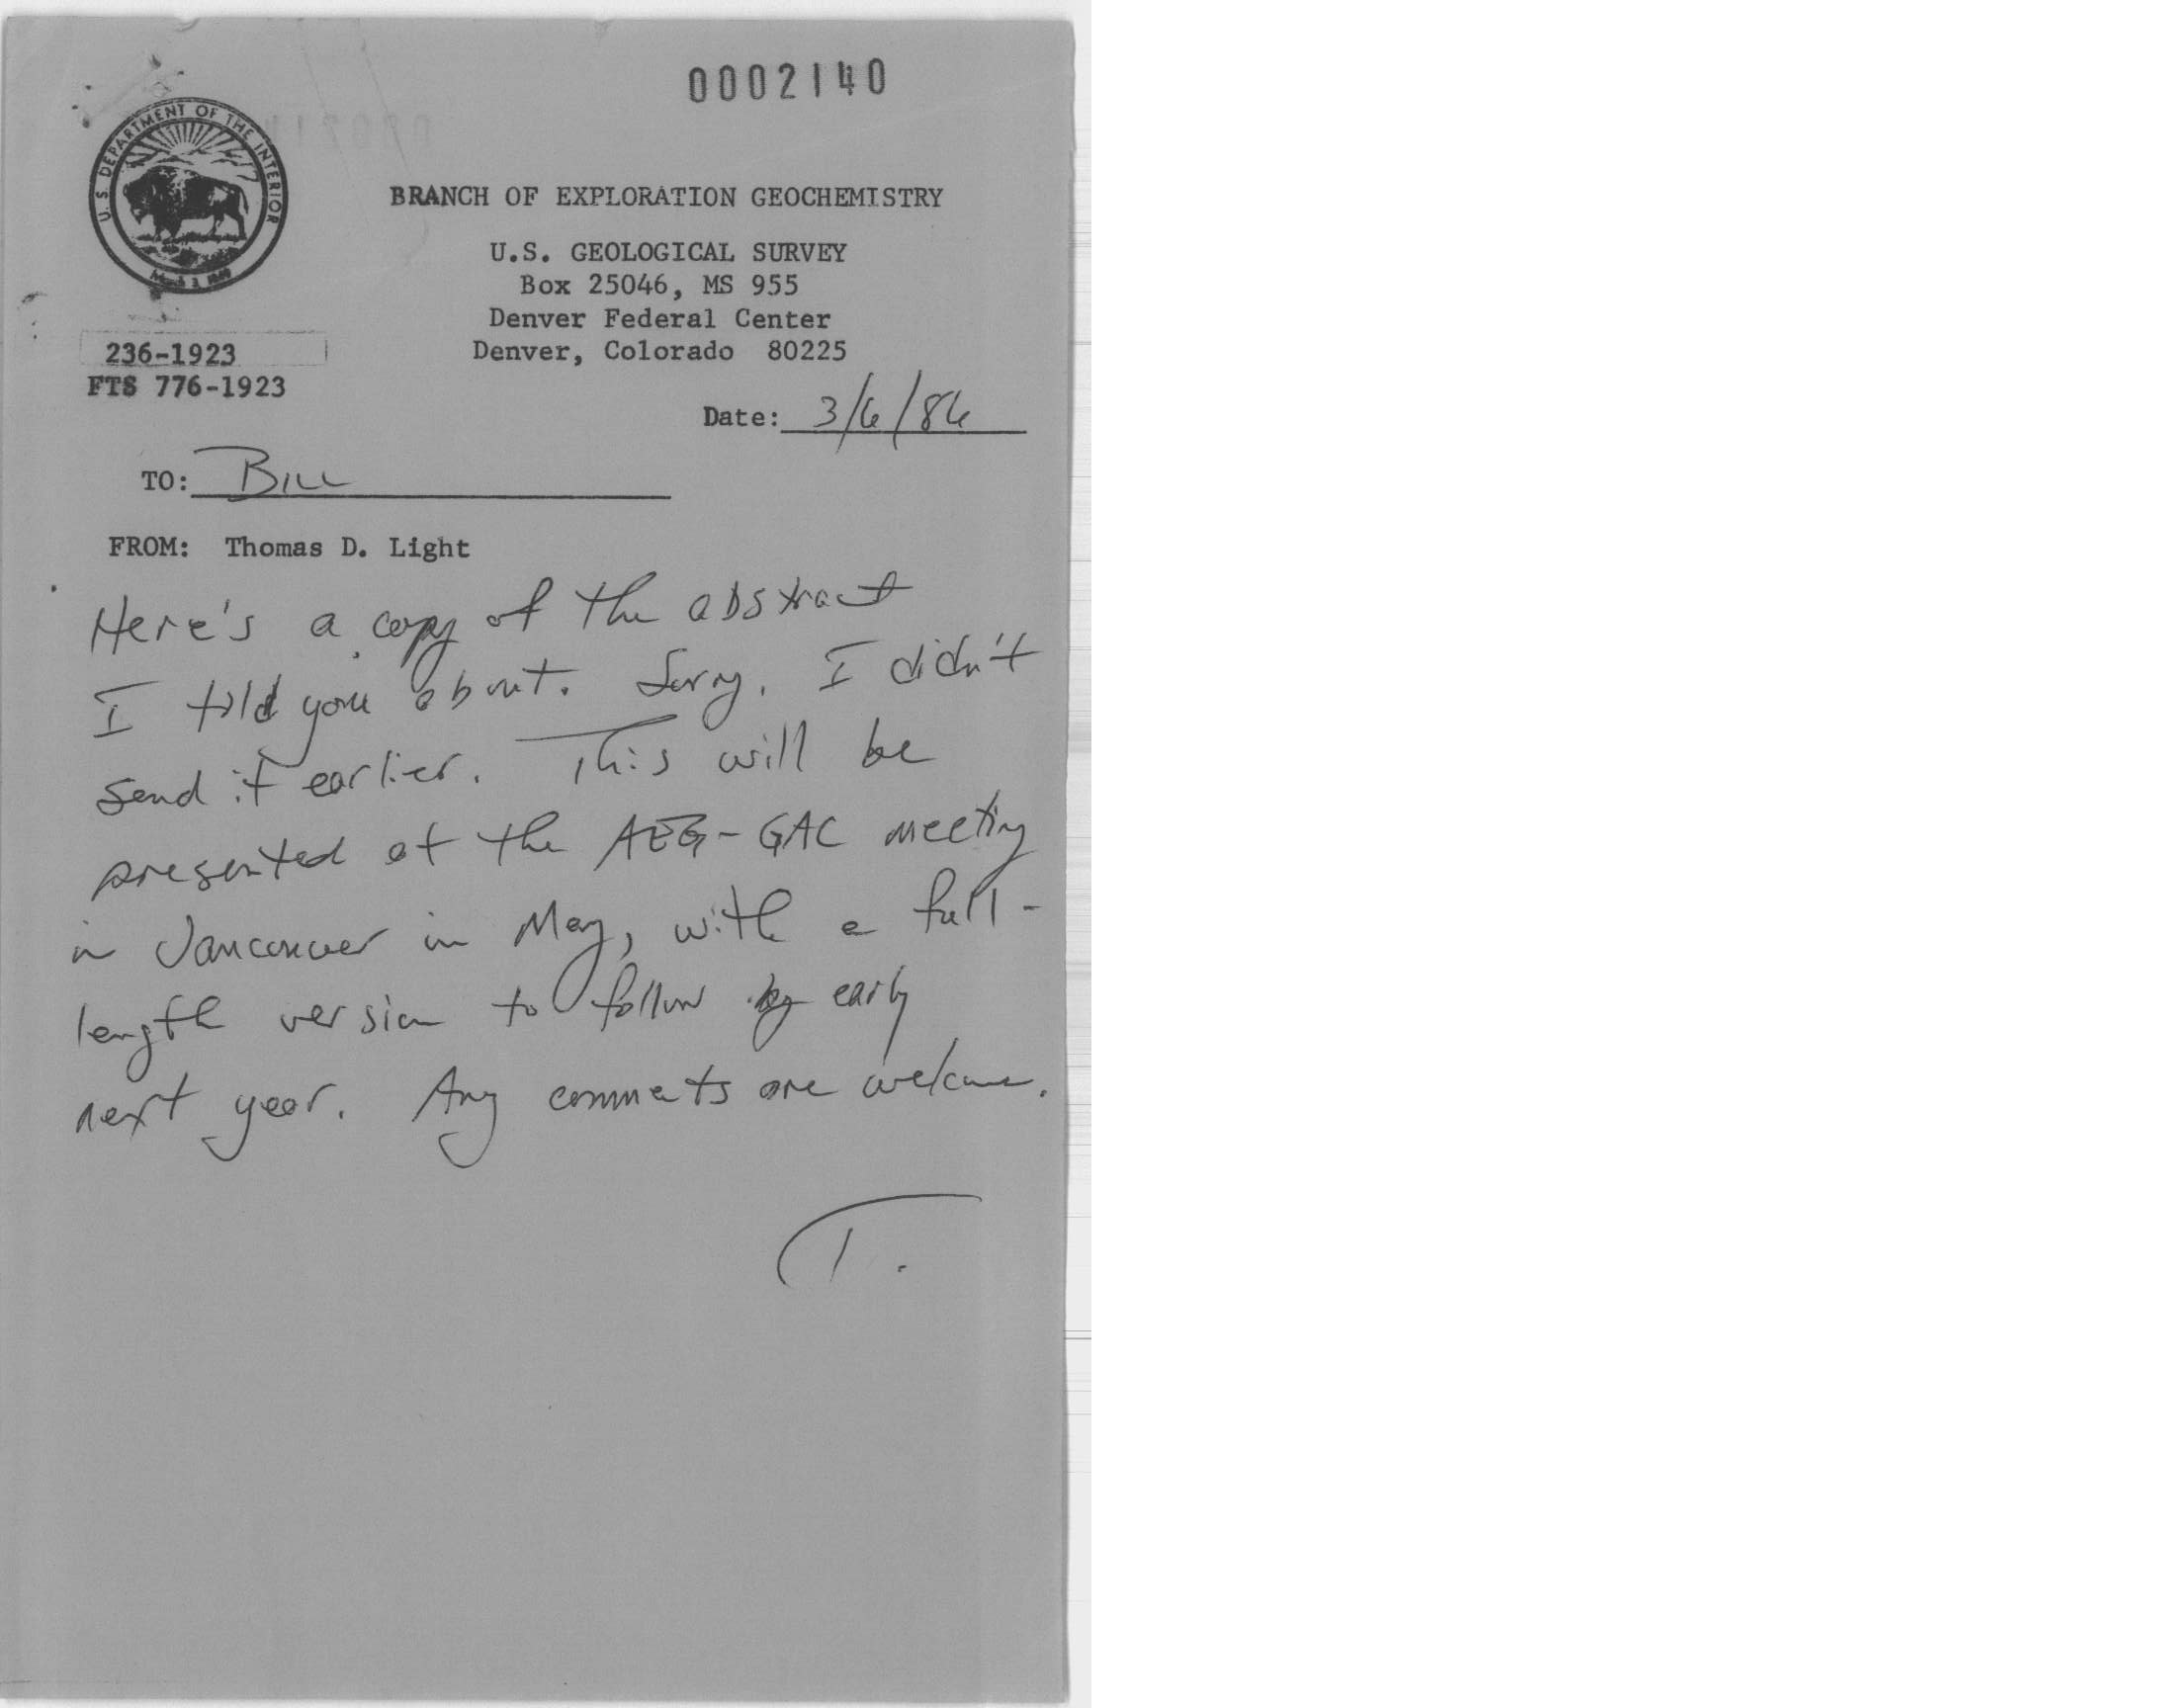 0002140
U.S. DEPARTMENT OF THE INTERIOR
March 3, 1849
BRANCH OF EXPLORATION GEOCHEMISTRY
U.S. GEOLOGICAL SURVEY
Box 25046, MS 955
Denver Federal Center
Denver, Colorado 80225
236-1923
FTS 776-1923
Date: 3/6/86
TO: BILL
FROM: Thomas D. Light
Here's a copy of the abstract
I told you about. Sorry. I didn't
send it earlier. This will be
presented at the AEG-GAC meeting
in Vancouver in May, with a full-
length version to follow by early
next year. Any comments are welcome.
T.